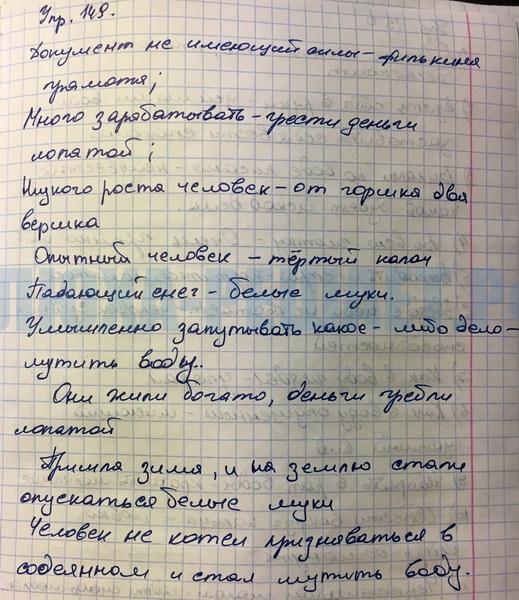 Упр. 149.
Документ не имеющий силы - филькина
грамота;
Много зарабатывать - грести деньги
лопатой;
Низкого роста человек - от горшка два
вершка
Опытный человек - тёртый калач
Падающий снег - белые мухи.
Умышленно запутывать какое-либо дело -
мутить воду..
Они жили богато, деньги гребли
лопатой
Пришла зима, и на землю стали
опускаться белые мухи
Человек не хотел признаваться в
содеянном и стал мутить воду.